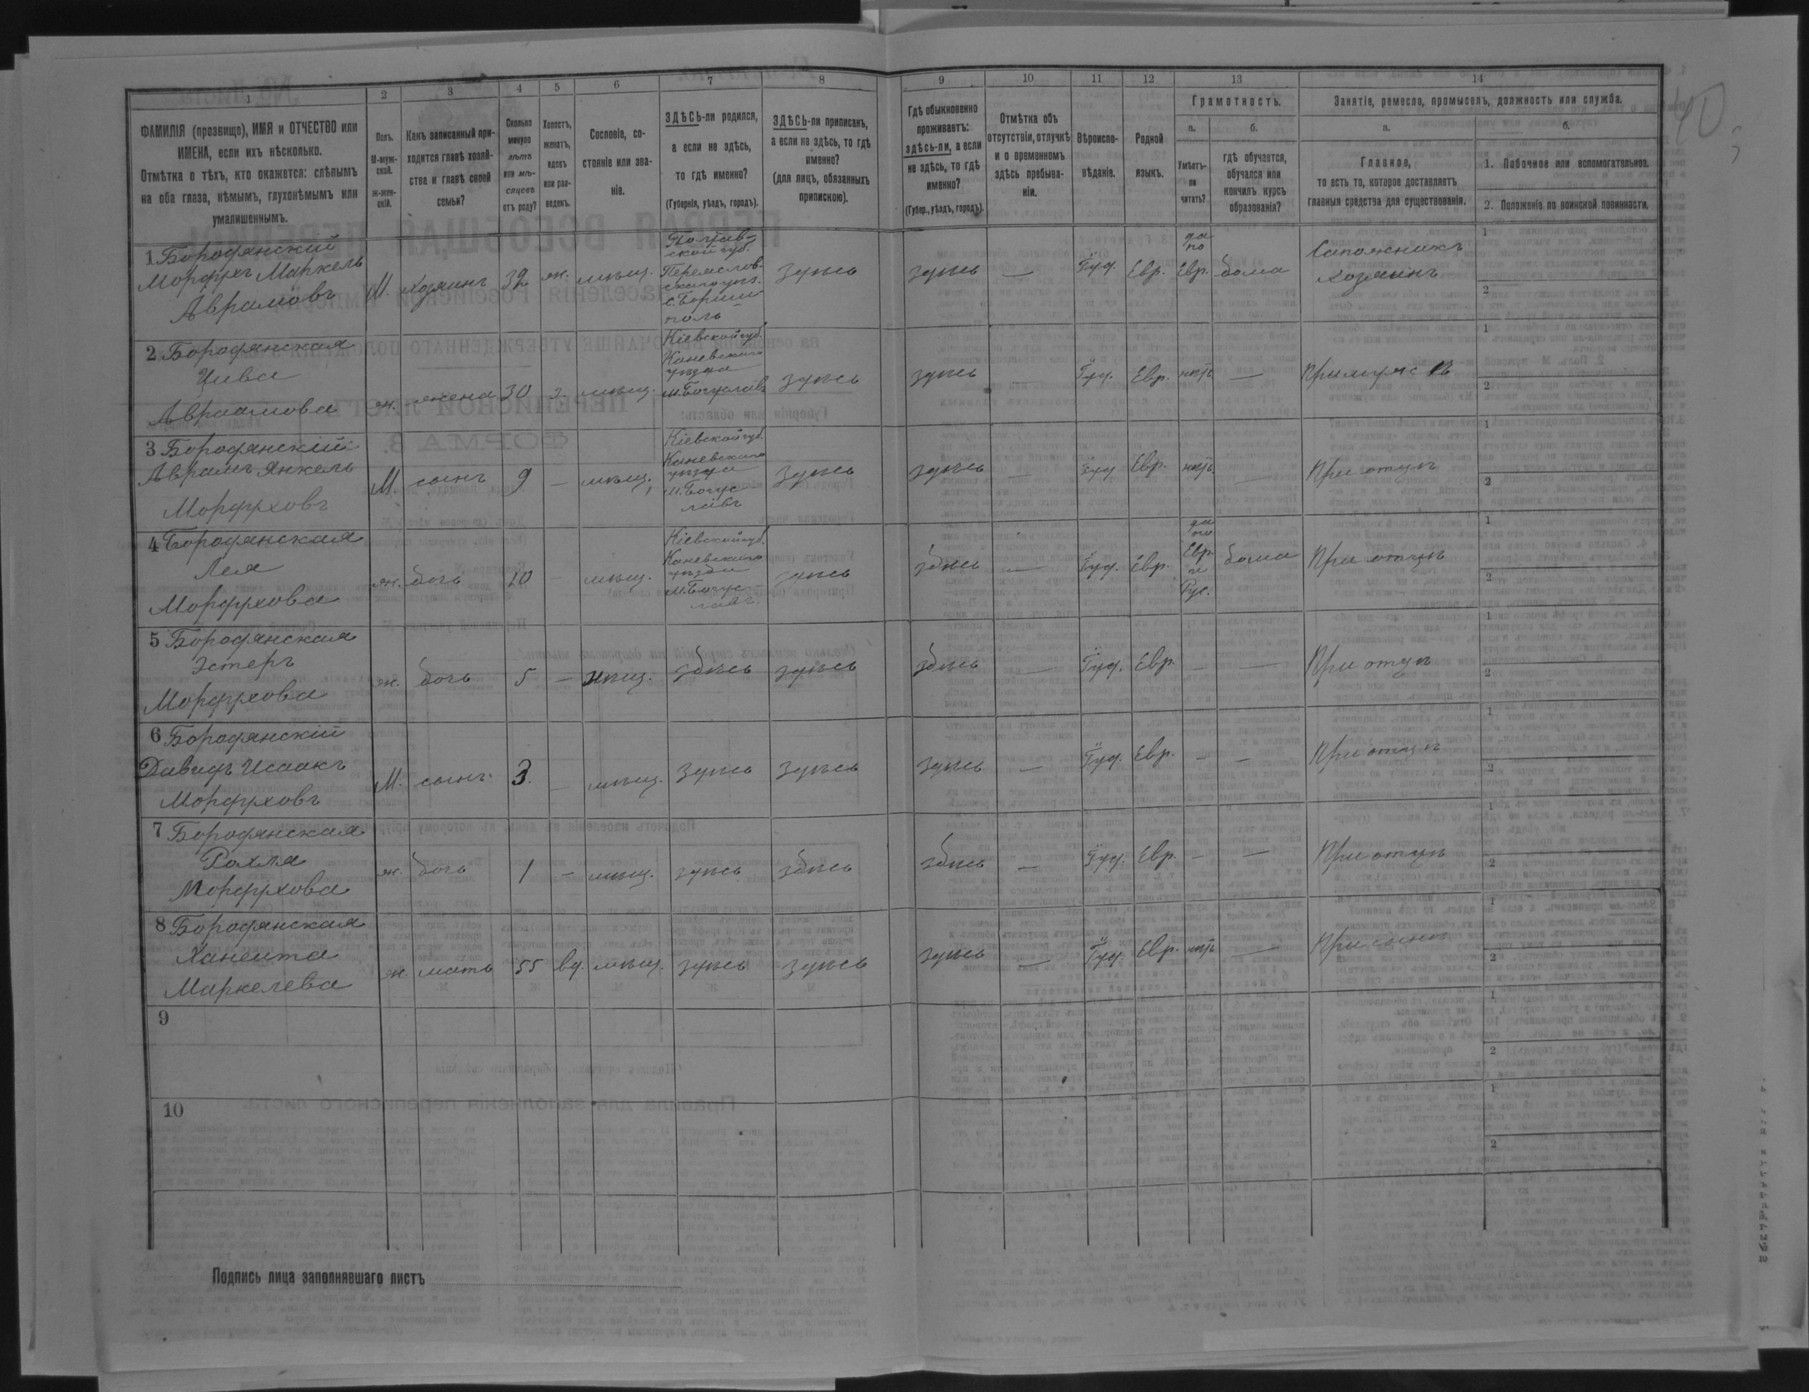 1 2 3 4 5 6 7 8 9 10 11 12 13 14
ФАМИЛІЯ (прозвище), ИМЯ и ОТЧЕСТВО или
ИМЕНА, если ихъ нѣсколько.
Отмѣтка о тѣхъ, кто окажется: слѣпымъ
на оба глаза, нѣмымъ, глухонѣмымъ или
умалишеннымъ.
Полъ.
М-муж-
ской.
ж-жен-
скій.
Какъ записанный при-
ходится главѣ хозяй-
ства и главѣ своей
семьи?
Сколько
минуло
лѣтъ
или мѣ-
сяцевъ
отъ роду?
Холостъ,
женатъ,
вдовъ
или раз-
веденъ.
Сословіе, со-
стояніе или зва-
ніе.
ЗДѢСЬ-ли родился,
а если не здѣсь,
то гдѣ именно?
(Губернія, уѣздъ, городъ).
ЗДѢСЬ-ли приписанъ,
а если не здѣсь, то гдѣ
именно?
(для лицъ, обязанныхъ
припискою).
Гдѣ обыкновенно
проживаетъ:
здѣсь-ли, а если
не здѣсь, то гдѣ
именно?
(Губер., уѣздъ, городъ).
Отмѣтка объ
отсутствіи, отлучкѣ
и о временномъ
здѣсь пребыва-
ніи.
Вѣроиспо-
вѣданіе.
Родной
языкъ.
Грамотность.
а.
Умѣетъ-
ли
читать?
б.
гдѣ обучается,
обучался или
кончилъ курсъ
образованія?
Занятіе, ремесло, промыселъ, должность или служба.
а.
Главное,
то есть то, которое доставляетъ
главныя средства для существованія.
б.
1. Побочное или вспомогательное.
2. Положеніе по воинской повинности.
40
1 Бородянскій
Мордухъ Маркель
Аврамовъ
М. хозяинъ 32 ж. мѣщ.
Полтав-
ской губ.
Переяслов-
скаго уѣз.
с. Борис-
поль
здѣсь здѣсь — Іуд. Евр.
да
по
Евр. дома
Сапожникъ
хозяинъ
1
2
2 Бородянская
Цива
Авраамова
ж. жена 30 з. мѣщ.
Кіевской губ.
Каневскаго
уѣзда
м. Богуславъ
здѣсь здѣсь Іуд. Евр. нѣтъ —
При мужѣ
1
2
3 Бородянскій
Аврамъ Янкель
Мордуховъ
М. сынъ 9 — мѣщ.
Кіевской губ.
Каневскаго
уѣзда
м. Богус
лавъ
здѣсь здѣсь — Іуд. Евр. нѣтъ —
При отцѣ
1
2
4 Бородянская
Лея
Мордухова
ж. дочь 10 — мѣщ.
Кіевской губ.
Каневскаго
уѣзда
м. Богус-
лавъ
здѣсь здѣсь — Іуд. Евр.
да
по
Евр.
и
Рус.
дома При отцѣ
1
2
5 Бородянская
Эстеръ
Мордухова
ж. дочь 5 — мѣщ. здѣсь здѣсь здѣсь — Іуд. Евр. — — При отцѣ
1
2
6 Бородянскій
Давидъ Исаакъ
Мордуховъ
М. сынъ 3. — мѣщ. здѣсь здѣсь здѣсь — Іуд. Евр. — — При отцѣ
1
2
7 Бородянская
Рохля
Мордухова
ж. дочь 1 — мѣщ. здѣсь здѣсь здѣсь — Іуд. Евр. — — При отцѣ
1
2
8 Бородянская
Маркелева
ж. мать 55 вд. мѣщ. здѣсь здѣсь здѣсь — Іуд. Евр. нѣтъ — При сынѣ
1
2
9
1
2
10
1
2
Подпись лица заполнявшаго листъ